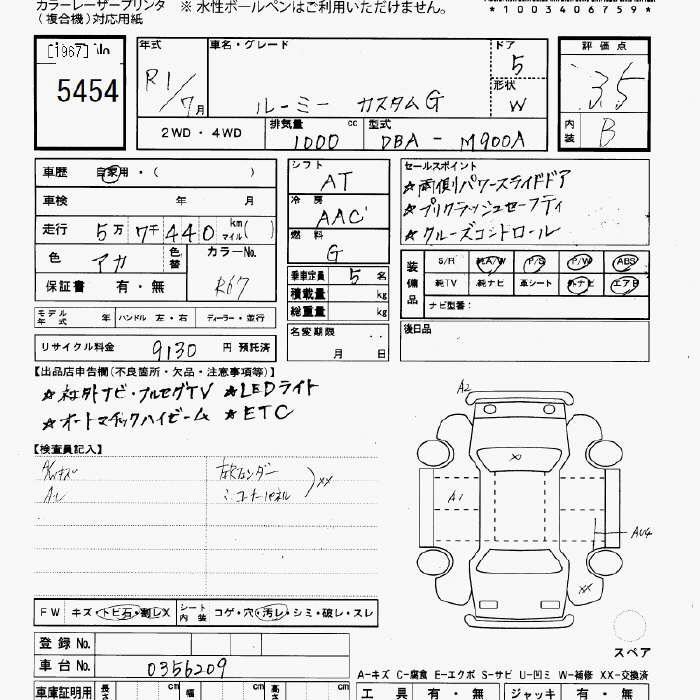 カラーレーザープリンタ ※ 水性ボールペンはご利用いただけません。
(複合機)対応用紙
*1003406759*
[1967]
5454
年式 R1/7月
車名・グレード ルーミー カスタムG
ドア 5
形状 W
評価点 3.5
内装 B
2WD・4WD
排気量 1000 cc
型式 DBA - M900A
車歴 自家用・( )
車検 年 月
走行 5万 7千 440 km マイル( )
色 アカ 色替 カラーNo. R67
保証書 有・無
モデル年式 年 ハンドル 左・右 ディーラー・並行
リサイクル料金 9130 円 預託済
シフト AT
冷房 AAC
燃料 G
乗車定員 5 名
積載量 kg
総重量 kg
名変期限 月 日
セールスポイント
★両側パワースライドドア
★プリクラッシュセーフティ
★クルーズコントロール
装備品
S/R 純A/W P/S P/W ABS
純TV 純ナビ 革シート 外ナビ エアB
ナビ型番:
後日品
【出品店申告欄(不良箇所・欠品・注意事項等)】
★社外ナビ・フルセグTV ★LEDライト
★オートマチックハイビーム ★ETC
【検査員記入】
コーナーパネル XX
A2
X
A1
AU4
XX
スペア
FW キズ・トビ石・割レX
シート内装 コゲ・穴・汚レ・シミ・破レ・スレ
登録No.
車台No. 0356209
車庫証明用 長さ cm 幅 cm 高さ cm
A-キズ C-腐食 E-エクボ S-サビ U-凹ミ W-補修 XX-交換済
工具 有・無 ジャッキ 有・無